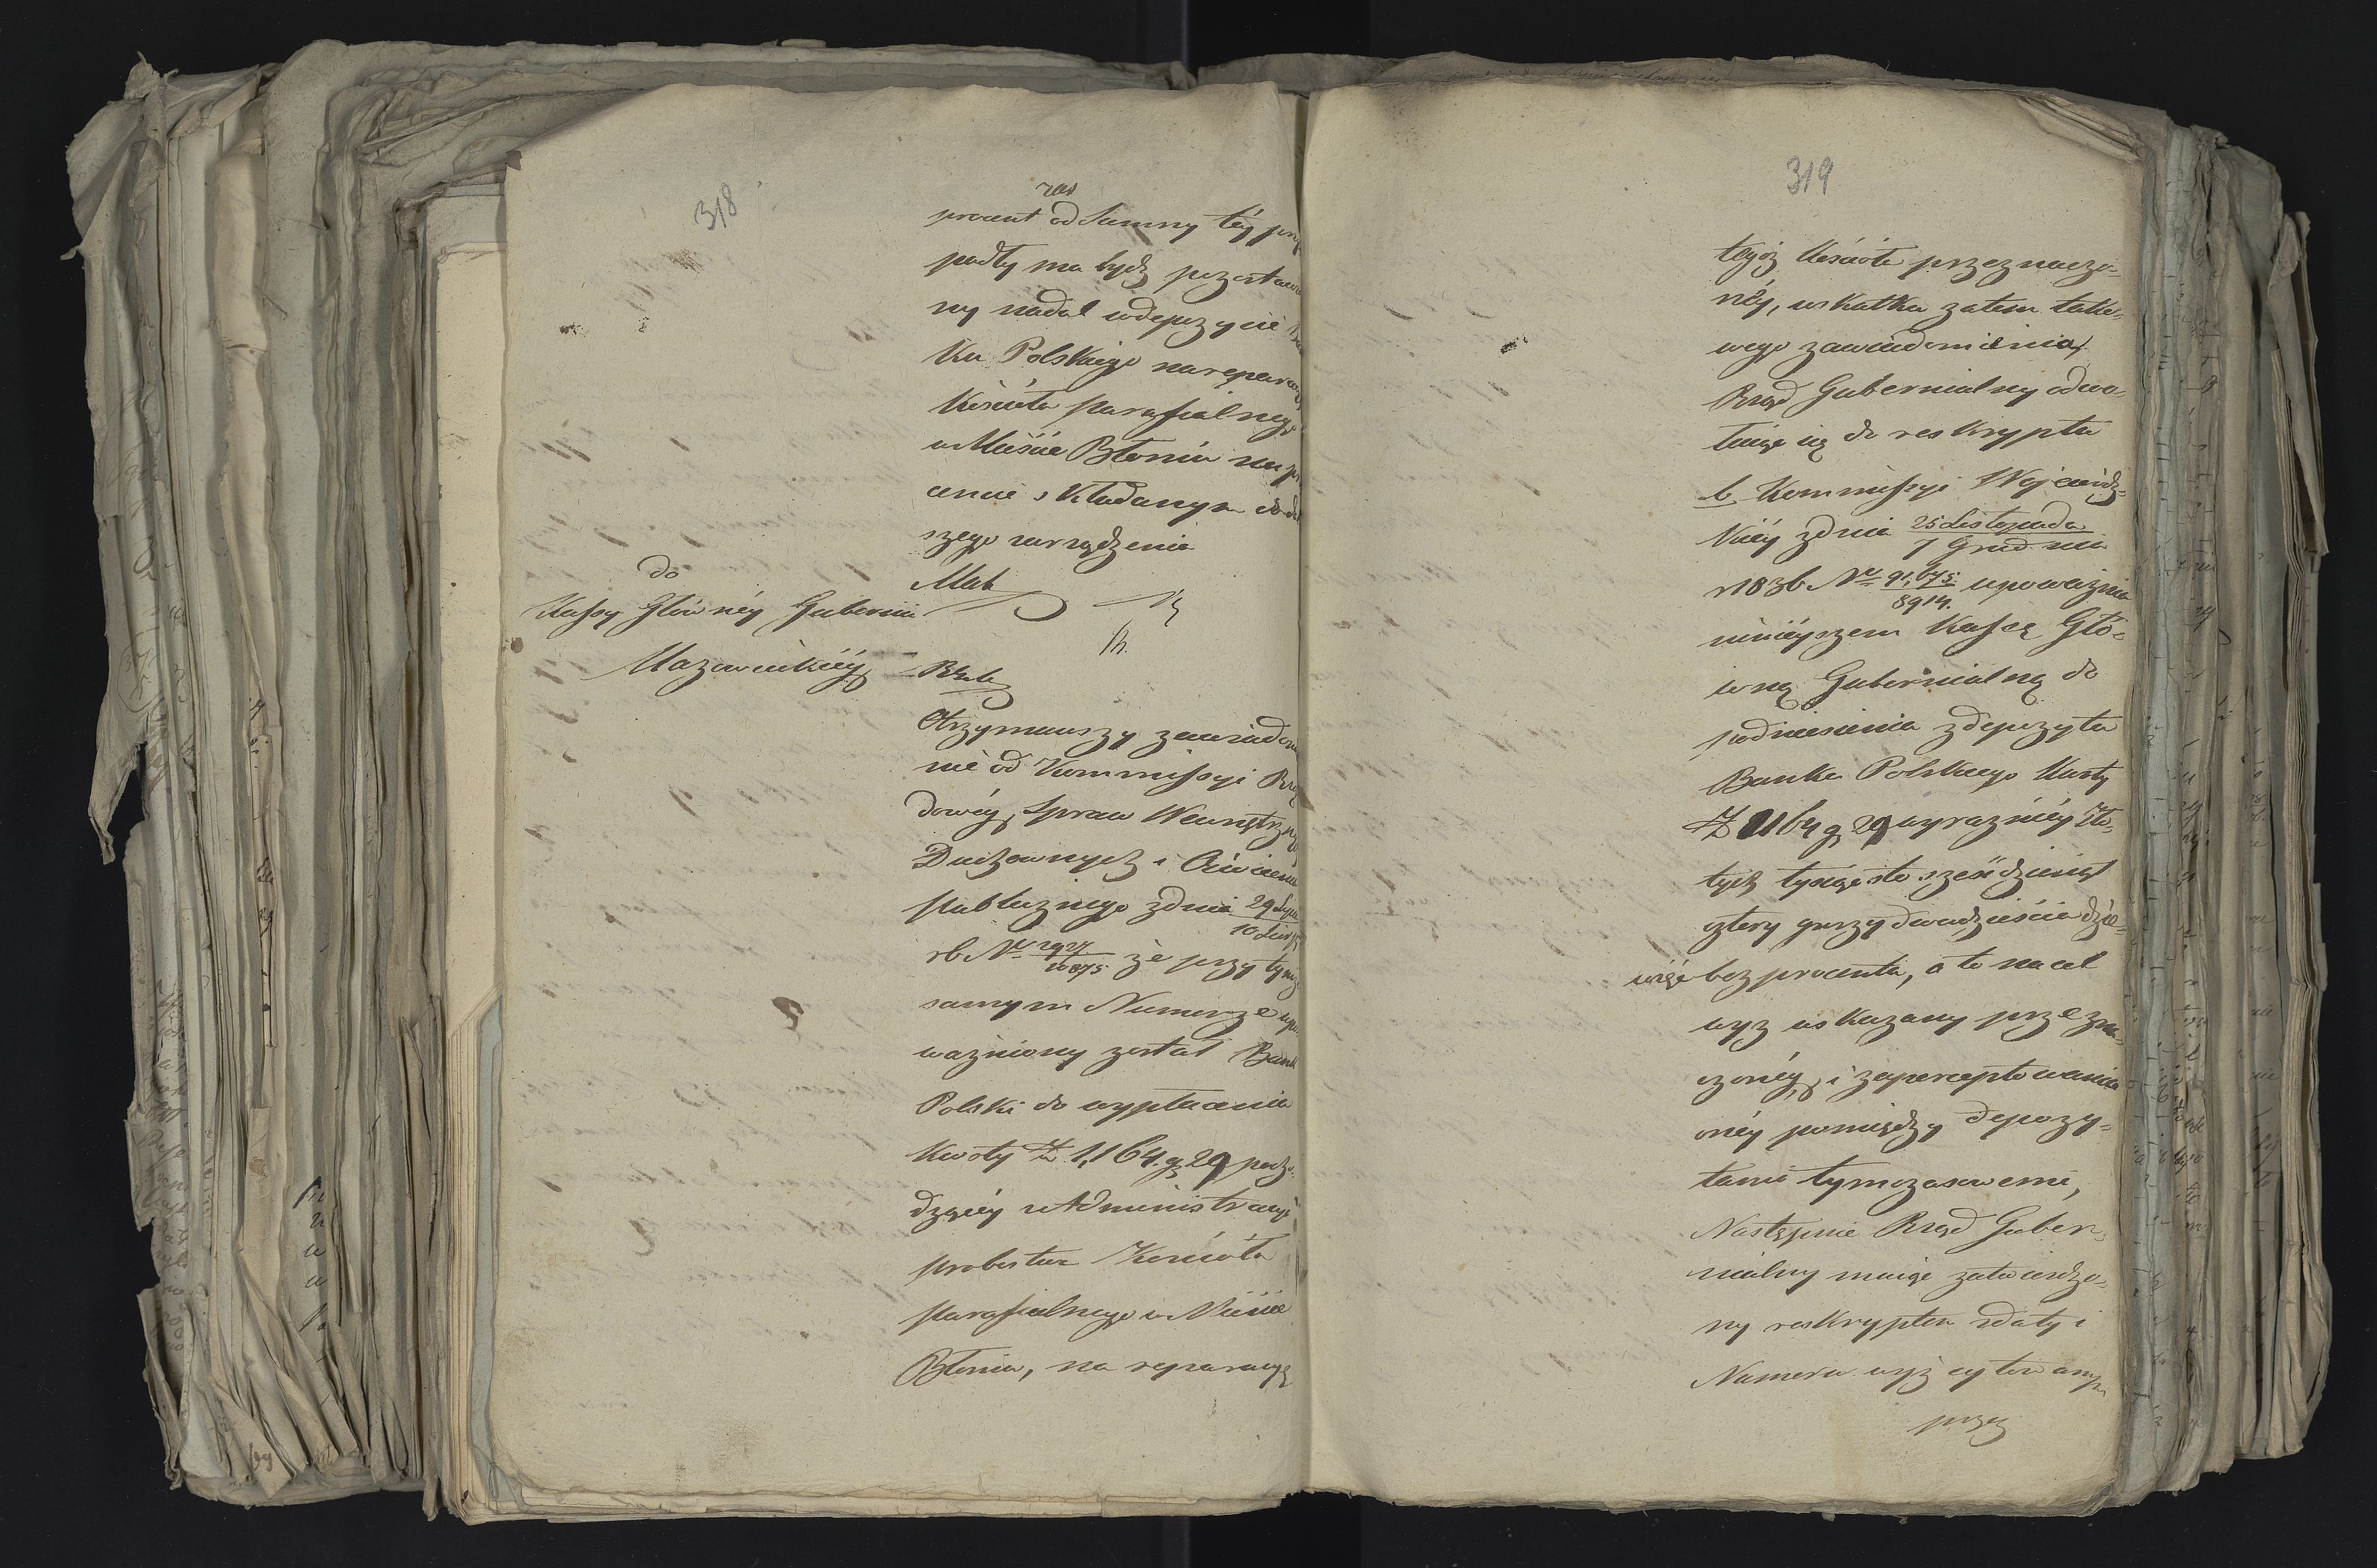 318
zas
procent od Summy téy przy
padły ma bydź pozostawio
ny nadal w depozycie Ban
ku Polskiego na reparacyą
Kościoła parafialnego
w Mieście Błoniu na pro
cencie składanym do dal
szego zarządzenia
do
Kassy Główney Gubernii
Mazowieckiéy
Otrzymawszy zawiadomie
nie od Kommissyi Rzą
dowéy Spraw Wewnętrznych
Duchownych i Oświecenia
publicznego z dnia 29 Lipca
10 Sierp
rb No 2927
10875 że przy tymże
samym Numerze upo
ważniony został Bank
Polski do wypłacenia
Kwoty Zł. 1,164. gr 29 pocho
dzącéy z Administracyi
probostwa Kościoła
parafialnego w Mieście
Błoniu, na reparacyą
319
tegoż Kościoła przeznaczo-
néy, w skutku zatem tako-
wego zawiadomienia
Rząd Gubernialny odwo-
łuiąc się do reskryptu
b. Kommissyi Wojewódz-
kiéy z dnia 25 Listopada
7 Grudnia
r 1836 No 91,675
8914. upoważnia
ninieyszem Kassę Głó-
wną Gubernialną do
podniesienia z depozytu
Banku Polskiego Kwoty
Zł 1164 gr 29 wyrazniéy Zło-
tych tysiąc sto sześćdziesiąt
cztery groszy dwadzieścia dzie-
więć bez procentu, a to na cel
wyż wskazany przezna-
czonéy, i zapercepto wania
onéy pomiędzy depozy-
tami tymczasowemi,
Następnie Rząd Guber-
nialny maiąc zatwierdzo-
ny reskryptem z daty i
Numeru wyż cytowanym
przez